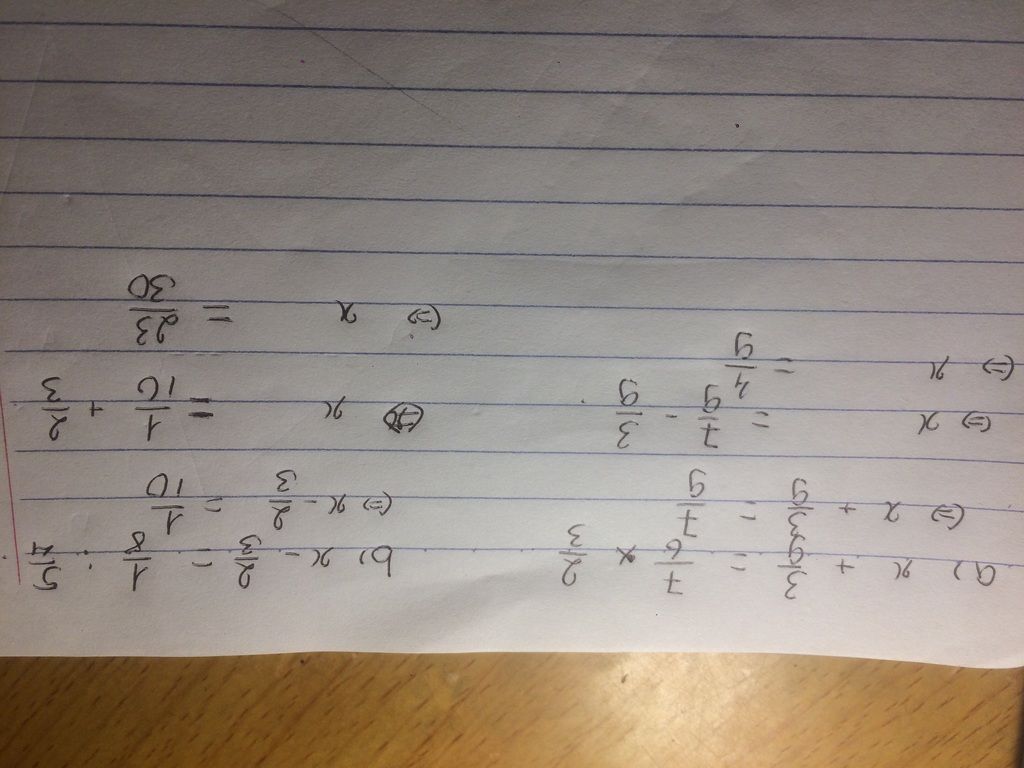 a) x + 3/9 = 7/6 × 2/3
(=) x + 3/9 = 7/9
(=) x = 7/9 - 3/9
(=) x = 4/9
b) x - 2/3 = 1/8 : 5/4
(=) x - 2/3 = 1/10
(=) x = 1/10 + 2/3
(=) x = 23/30